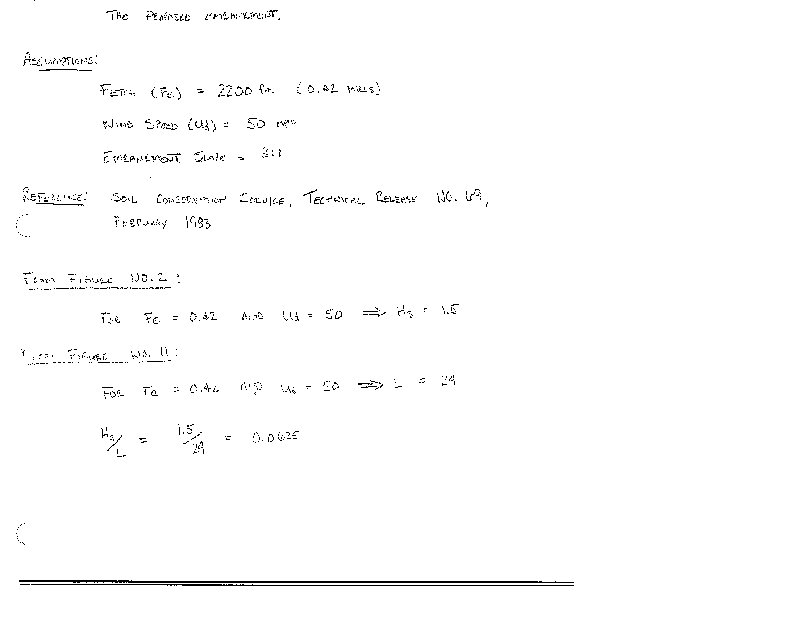 THE EMBANKMENT.
ASSUMPTIONS:
FETCH (Fe) = 2200 ft. (0.42 MILES)
WIND SPEED (Ud) = 50 MPH
EMBANKMENT SLOPE = 3:1
REFERENCE: SOIL CONSERVATION SERVICE, TECHNICAL RELEASE NO. 69,
FEBRUARY 1983
FROM FIGURE NO. 2:
FOR Fe = 0.42 AND Ud = 50 ⇒ Hs = 1.5
FROM FIGURE NO. 4:
FOR Fe = 0.42 AND Ud = 50 ⇒ L = 24
Hs/L = 1.5/24 = 0.0625